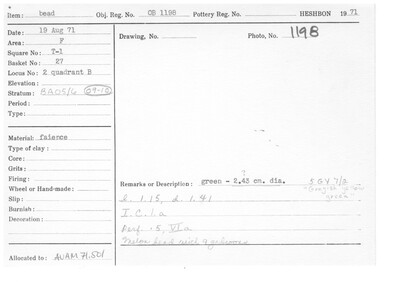 Item: bead Obj. Reg. No. OB 1198 Pottery Reg. No. HESHBON 1971
Date: 19 Aug 71
Area: F
Square No: T-1
Basket No: 27
Locus No: 2 quadrant B
Elevation:
Stratum: BAOS/6 09-10
Period:
Type:
Drawing, No. Photo, No. 1198
Material: faience
Type of clay:
Core:
Grits:
Firing:
Wheel or Hand-made:
Slip:
Burnish:
Decoration:
Remarks or Description: green - 2.43 cm. dia. 5 GY 7/2
green"
h. 1.15, d. 1.41
I.C.1.a
Perf. .5, VI a
Melon bead
Allocated to: AUAM 71.501